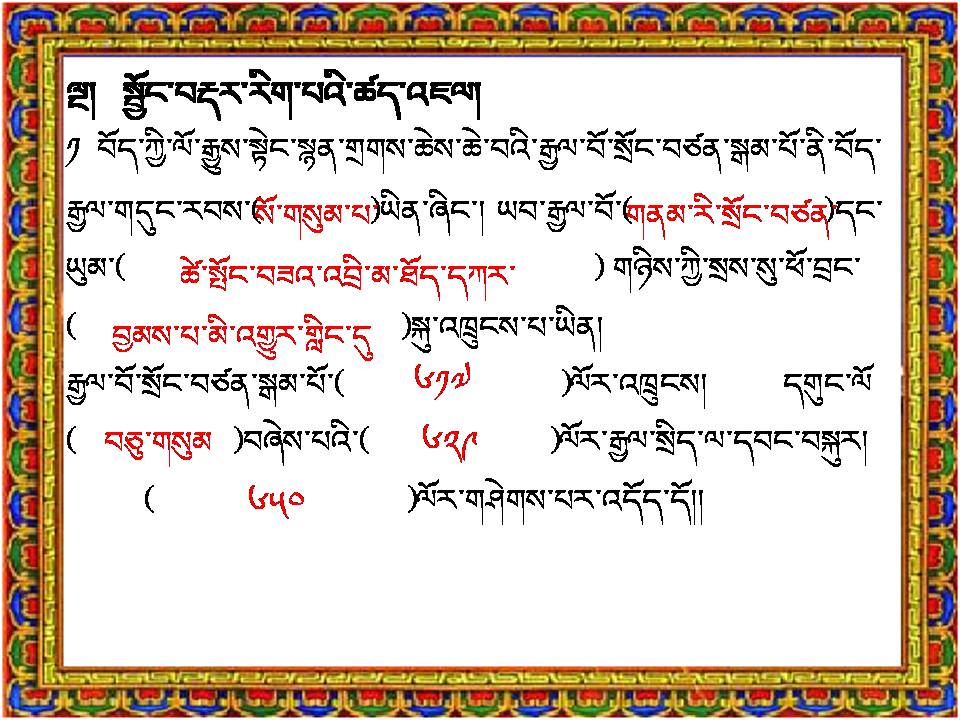 ལྔ།  སྦྱོང་བརྡར་རིག་པའི་ཚད་འཇལ།
༡ བོད་ཀྱི་ལོ་རྒྱུས་སྟེང་སྙན་གྲགས་ཆེས་ཆེ་བའི་རྒྱལ་བོ་སྲོང་བཙན་སྒམ་པོ་ནི་བོད་
རྒྱལ་གདུང་རབས་(སོ་གསུམ་པ་)ཡིན་ཞིང་། ཡབ་རྒྱལ་བོ་(གནམ་རི་སྲོང་བཙན་)དང་
ཡུམ་( ཚེ་སྤོང་བཟའ་འབྲི་མ་ཐོད་དཀར་ ) གཉིས་ཀྱི་སྲས་སུ་ཕོ་བྲང་
( བྱམས་པ་མི་འགྱུར་གླིང་དུ )སྐུ་འཁྲུངས་པ་ཡིན།
རྒྱལ་བོ་སྲོང་བཙན་སྒམ་པོ་( ༦༡༧ )ལོར་འཁྲུངས། དགུང་ལོ
( བཅུ་གསུམ )བཞེས་པའི་( ༦༢༩ )ལོར་རྒྱལ་སྲིད་ལ་དབང་བསྐུར།
( ༦༥༠ )ལོར་གཤེགས་པར་འདོད་དོ།།